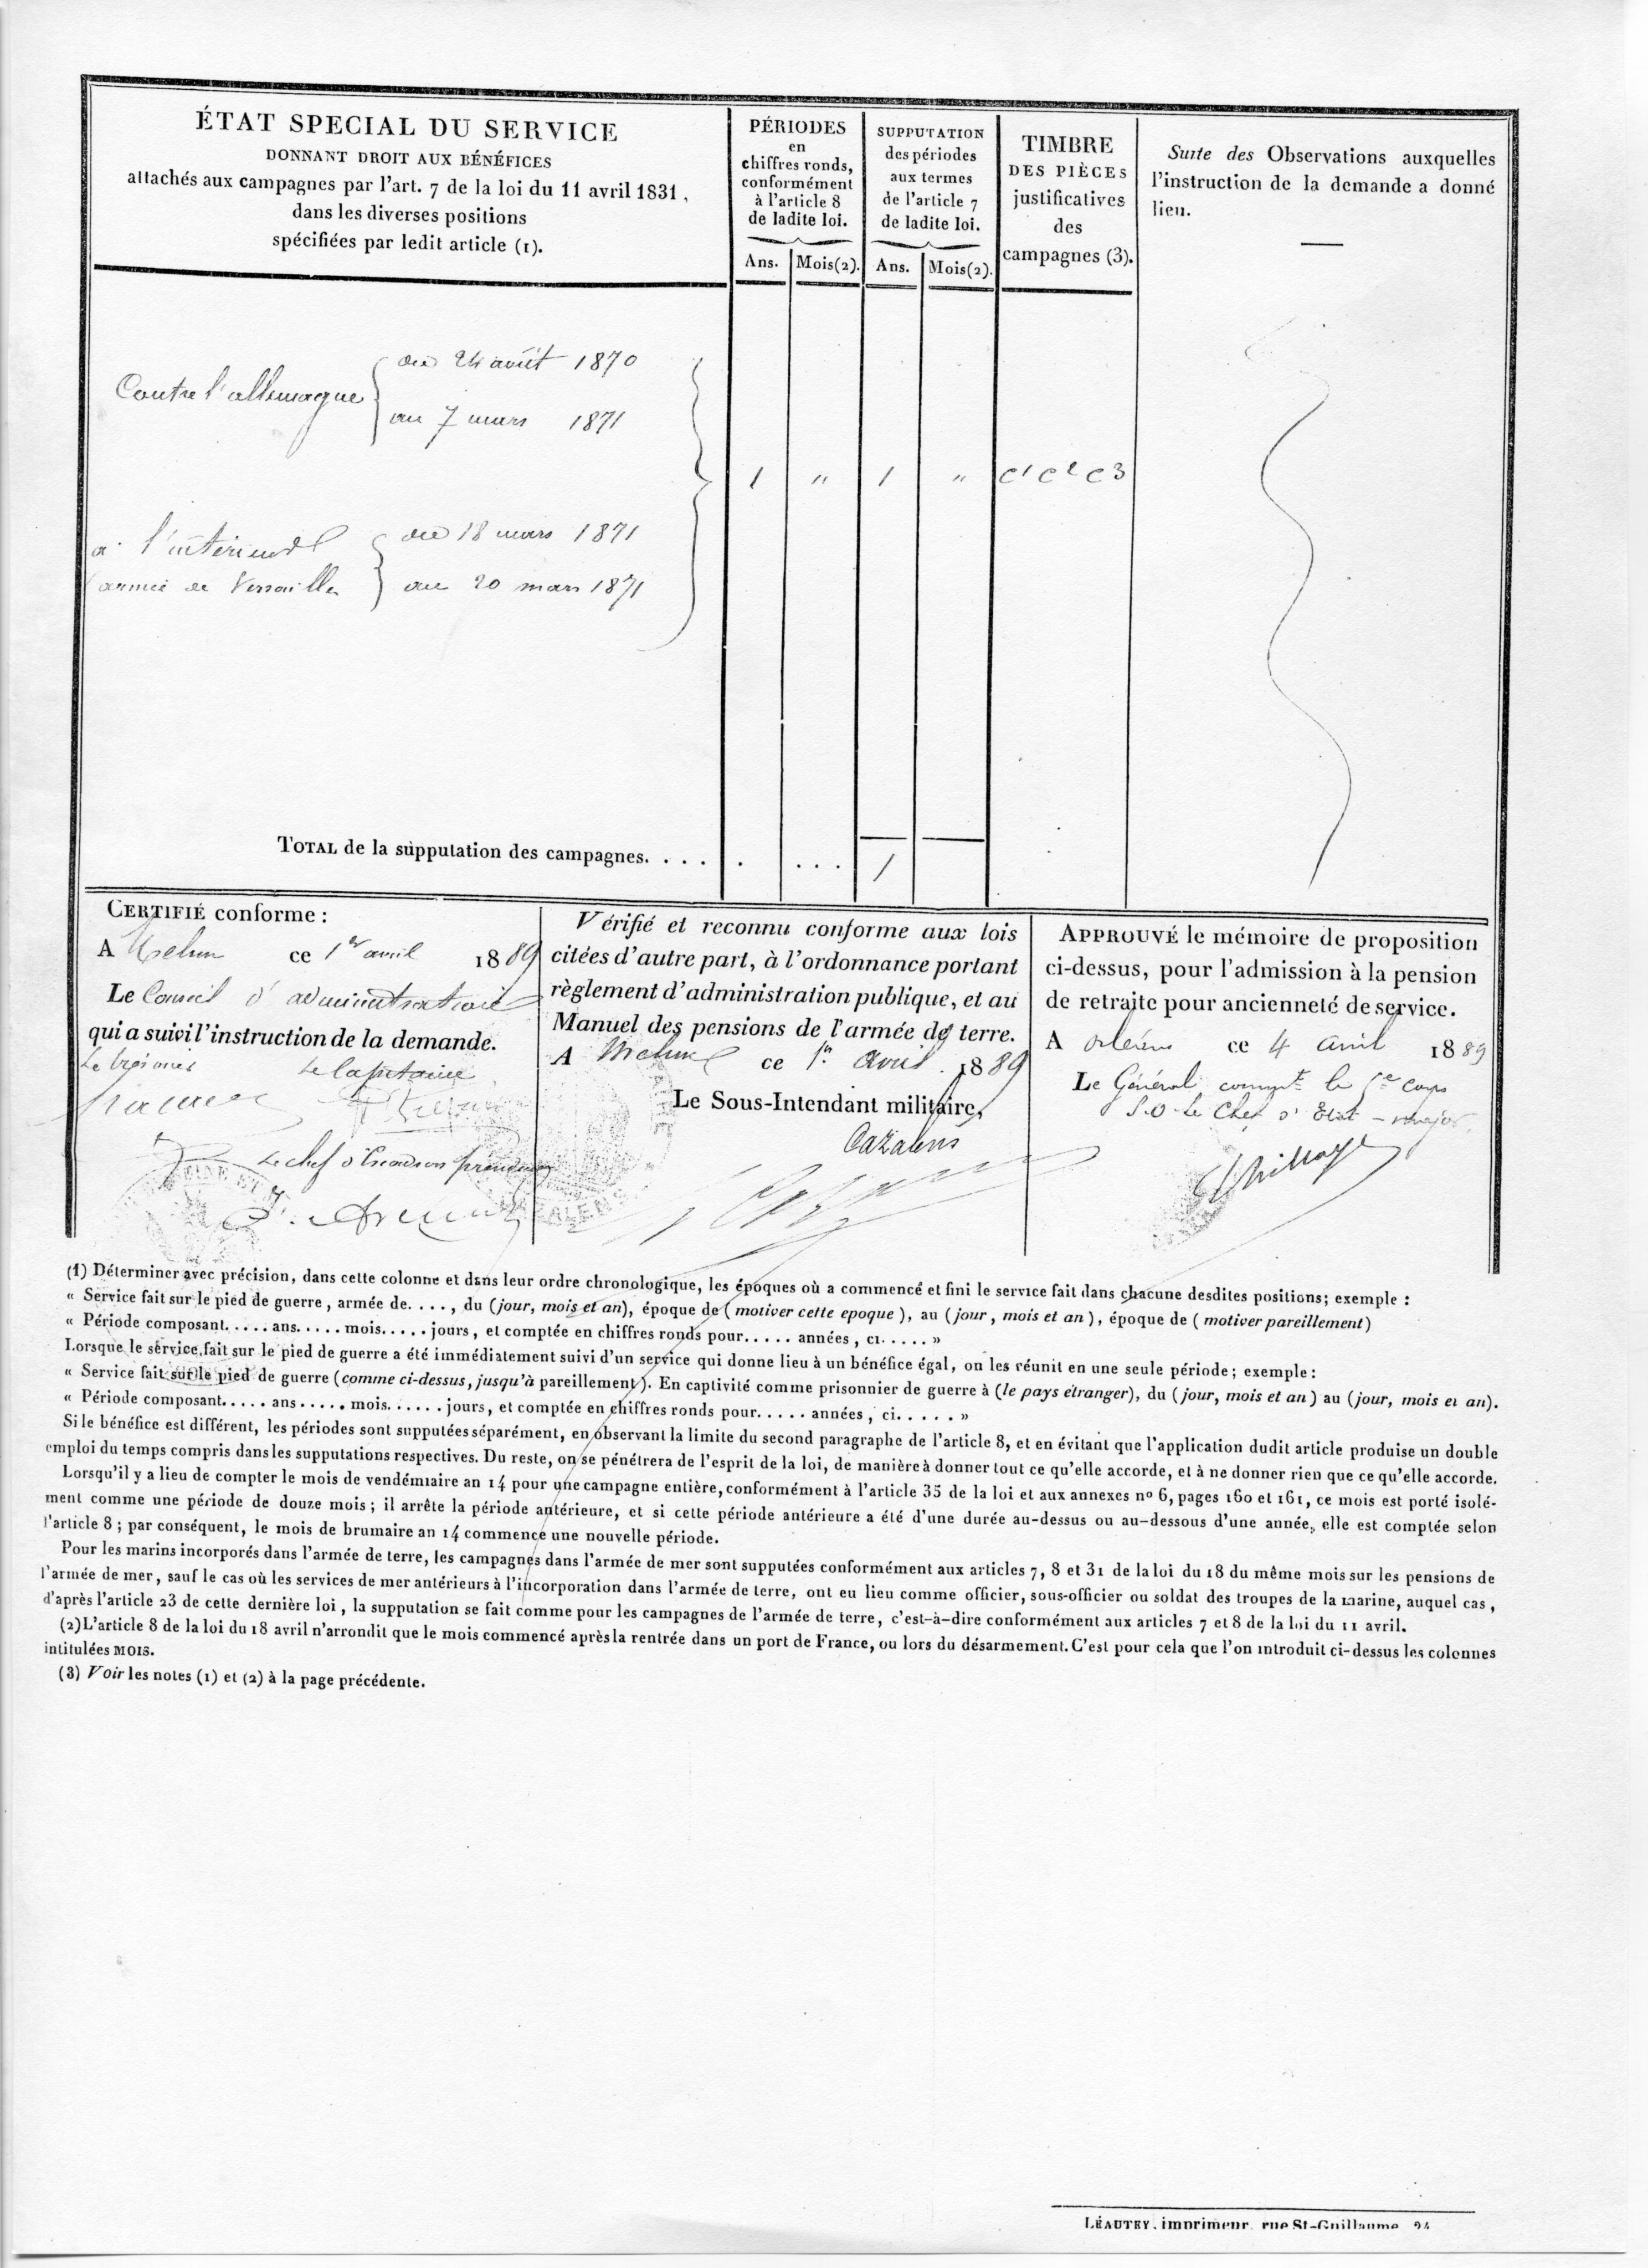 ÉTAT SPECIAL DU SERVICE
DONNANT DROIT AUX BÉNÉFICES
attachés aux campagnes par l'art. 7 de la loi du 11 avril 1831,
dans les diverses positions
spécifiées par ledit article (1).
PÉRIODES
en
chiffres ronds,
conformément
à l'article 8
de ladite loi.
Ans. Mois(2).
SUPPUTATION
des périodes
aux termes
de l'article 7
de ladite loi.
Ans. Mois(2).
TIMBRE
DES PIÈCES
justificatives
des
campagnes (3).
Suite des Observations auxquelles
l'instruction de la demande a donné
lieu.
Contre l'allemagne
du 24 août 1870
au 7 mars 1871
1 " 1 " C1 C2 C3
a l'intérieur
armée de Versailles
du 18 mars 1871
au 20 mars 1871
TOTAL de la supputation des campagnes. . . . . . . . 1
CERTIFIÉ conforme :
A Melun ce 1er avril 1889
Le Conseil d'administration
qui a suivi l'instruction de la demande.
Le trésorier Le Capitaine
Le chef d'Escadron président
Vérifié et reconnu conforme aux lois
citées d'autre part, à l'ordonnance portant
règlement d'administration publique, et au
Manuel des pensions de l'armée de terre.
A Melun ce 1er avril 1889
Le Sous-Intendant militaire,
Cazalens
APPROUVÉ le mémoire de proposition
ci-dessus, pour l'admission à la pension
de retraite pour ancienneté de service.
A orléans ce 4 avril 1889
Le Général commdt le 5e Corps
P.O. Le Chef d'Etat-major
(1) Déterminer avec précision, dans cette colonne et dans leur ordre chronologique, les époques où a commencé et fini le service fait dans chacune desdites positions; exemple :
« Service fait sur le pied de guerre, armée de. . . ., du (jour, mois et an), époque de (motiver cette epoque), au (jour, mois et an), époque de (motiver pareillement)
« Période composant. . . . . ans. . . . . mois. . . . . jours, et comptée en chiffres ronds pour. . . . . années, ci. . . . . »
Lorsque le service fait sur le pied de guerre a été immédiatement suivi d'un service qui donne lieu à un bénéfice égal, on les réunit en une seule période; exemple :
« Service fait sur le pied de guerre (comme ci-dessus, jusqu'à pareillement). En captivité comme prisonnier de guerre à (le pays étranger), du (jour, mois et an) au (jour, mois et an).
« Période composant. . . . . ans. . . . . mois. . . . . . jours, et comptée en chiffres ronds pour. . . . . années, ci. . . . . »
Si le bénéfice est différent, les périodes sont supputées séparément, en observant la limite du second paragraphe de l'article 8, et en évitant que l'application dudit article produise un double
emploi du temps compris dans les supputations respectives. Du reste, on se pénétrera de l'esprit de la loi, de manière à donner tout ce qu'elle accorde, et à ne donner rien que ce qu'elle accorde.
Lorsqu'il y a lieu de compter le mois de vendémiaire an 14 pour une campagne entière, conformément à l'article 35 de la loi et aux annexes no 6, pages 160 et 161, ce mois est porté isolé-
ment comme une période de douze mois; il arrête la période antérieure, et si cette période antérieure a été d'une durée au-dessus ou au-dessous d'une année, elle est comptée selon
l'article 8; par conséquent, le mois de brumaire an 14 commence une nouvelle période.
Pour les marins incorporés dans l'armée de terre, les campagnes dans l'armée de mer sont supputées conformément aux articles 7, 8 et 31 de la loi du 18 du même mois sur les pensions de
l'armée de mer, sauf le cas où les services de mer antérieurs à l'incorporation dans l'armée de terre, ont eu lieu comme officier, sous-officier ou soldat des troupes de la marine, auquel cas,
d'après l'article 23 de cette dernière loi, la supputation se fait comme pour les campagnes de l'armée de terre, c'est-à-dire conformément aux articles 7 et 8 de la loi du 11 avril.
(2) L'article 8 de la loi du 18 avril n'arrondit que le mois commencé après la rentrée dans un port de France, ou lors du désarmement. C'est pour cela que l'on introduit ci-dessus les colonnes
intitulées MOIS.
(3) Voir les notes (1) et (2) à la page précédente.
LÉAUTEY, imprimeur, rue St-Guillaume, 24